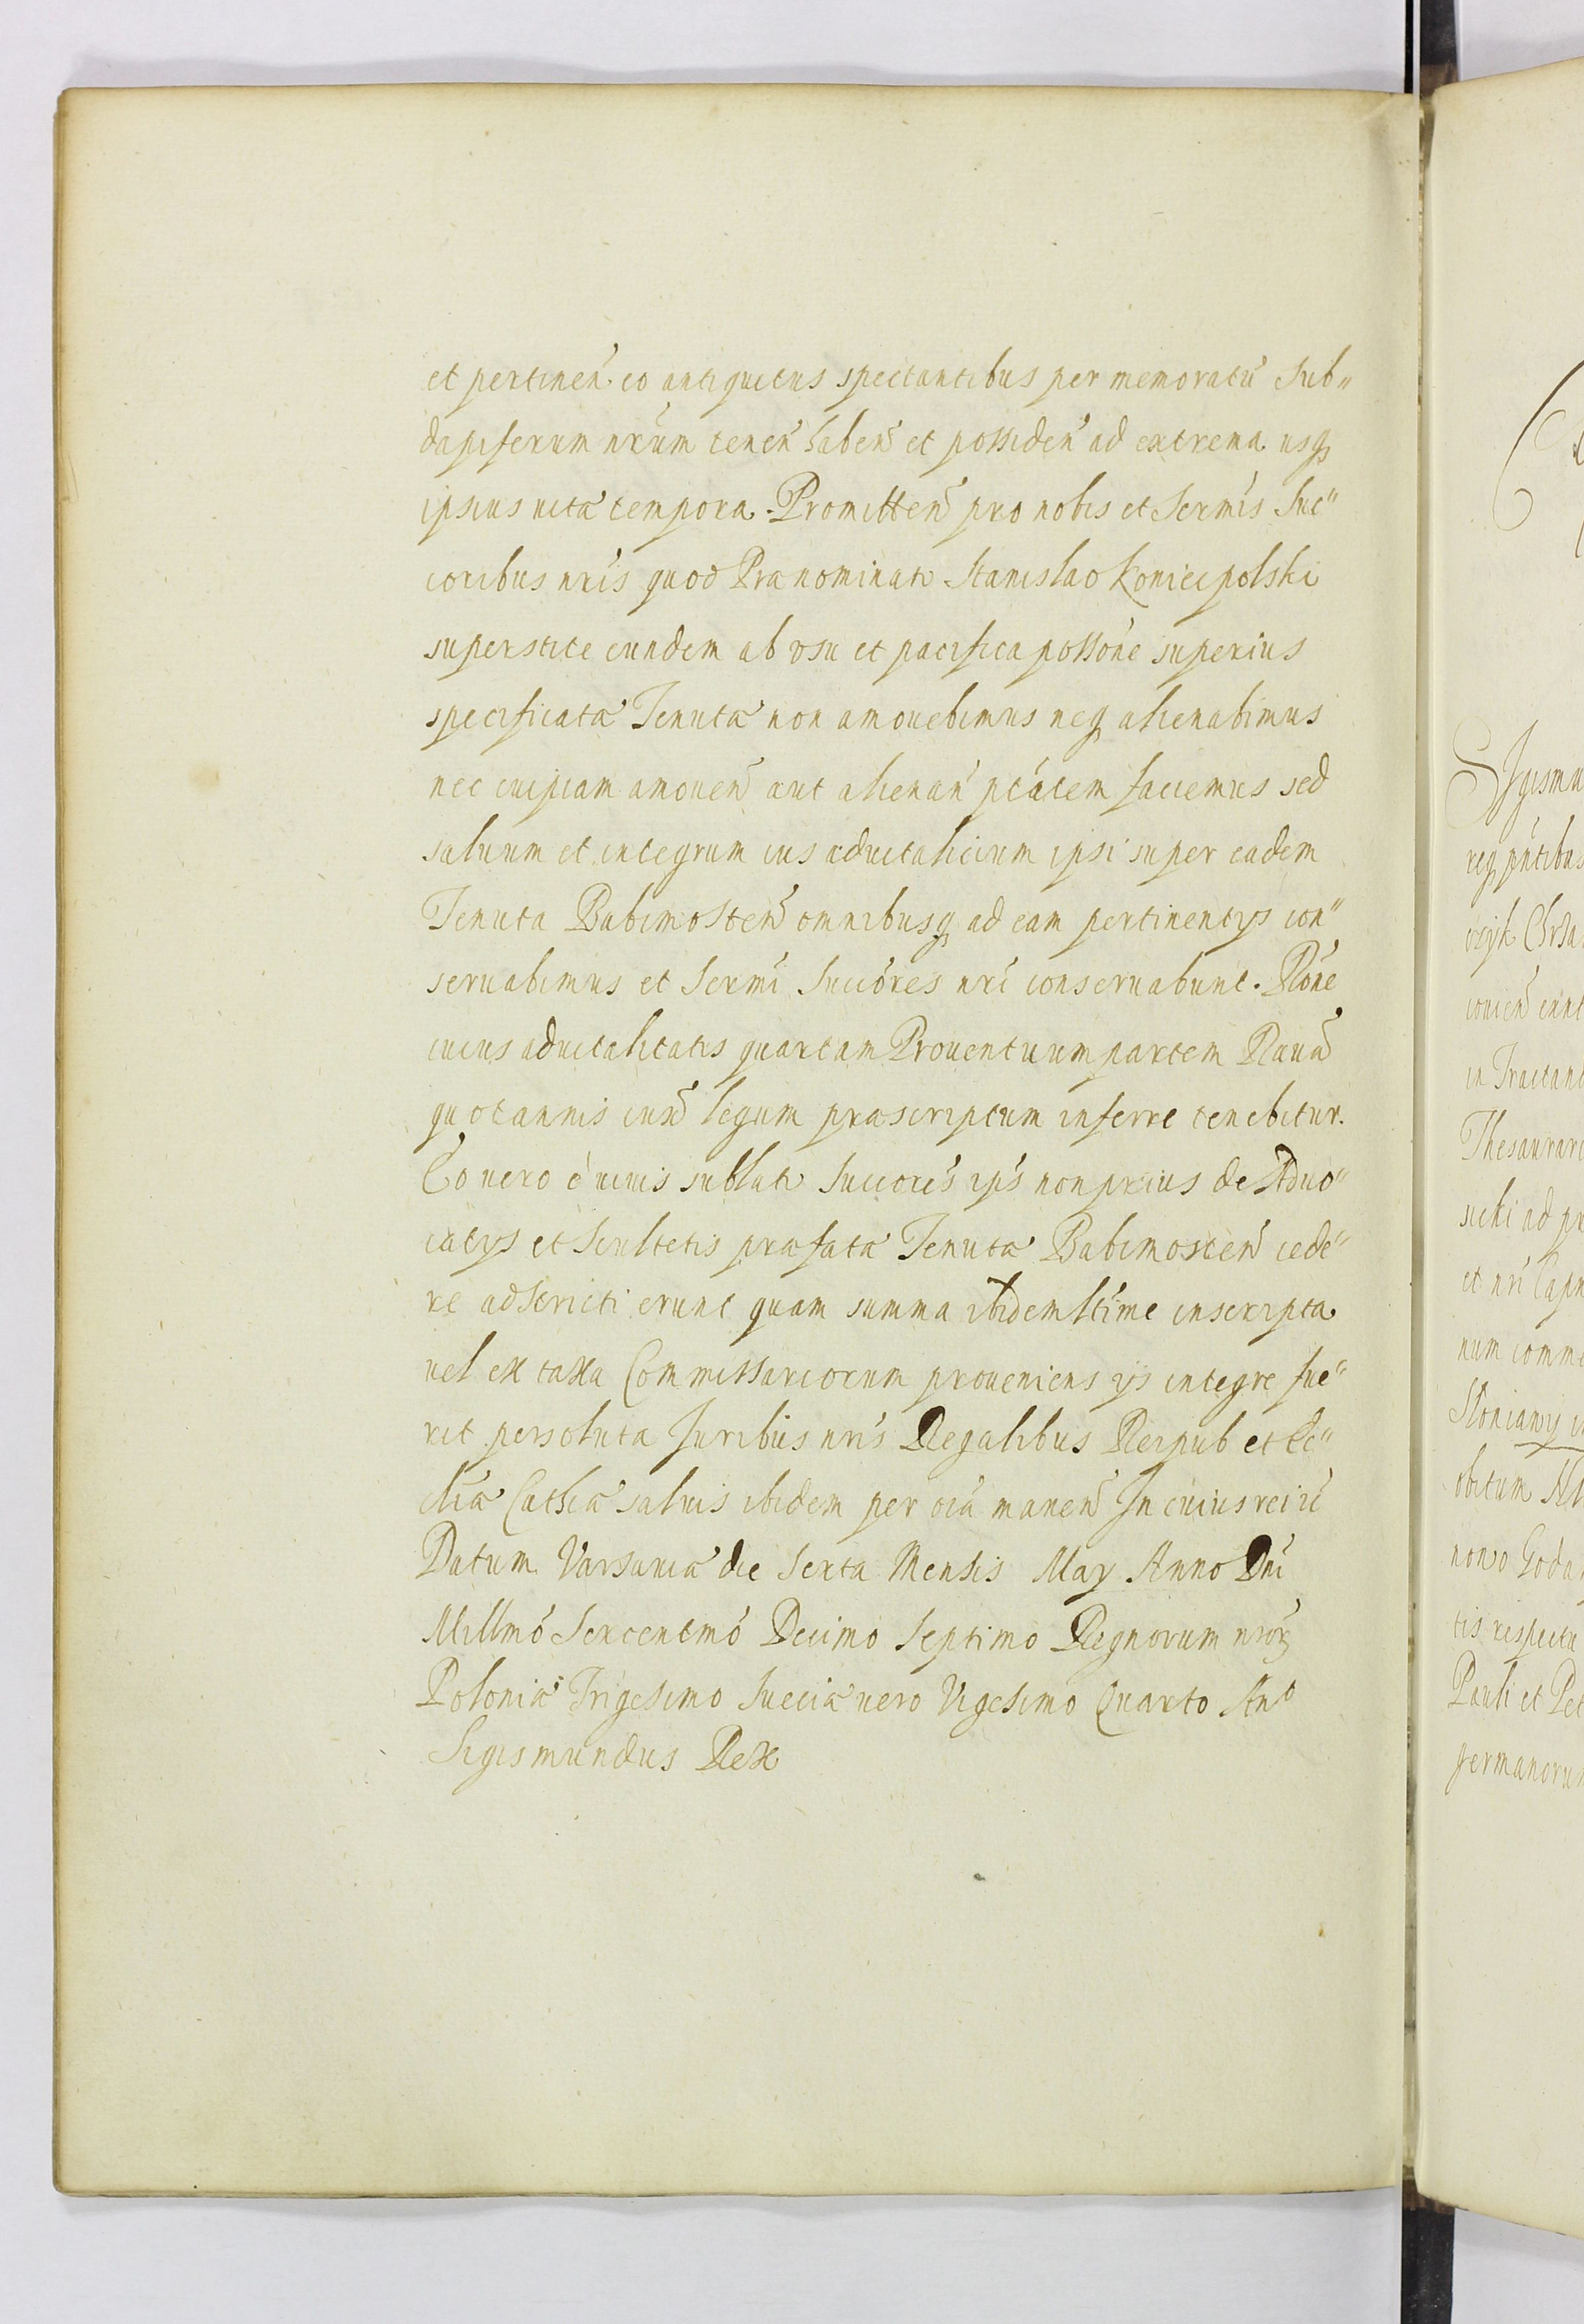 et pertineñ eo antiquitus spectantibus per memoratū Sub„
dapiferum nr̃um teneñ habeñ et possideñ ad extrema usq̧
ipsius uitæ tempora. Promitteñ pro nobis et Sermis Suc„
coribus nris quod Prænominato Stanislao Koniecpolski
superstite eundem ab vsu et pacifica possõne superius
specificatæ Tenutæ non amouebimus neq̧ alienabimus
nec cuipiam amoueñ aut alienañ ptãtem faciemus sed
saluum et integrum ius aduitalicium ipsi super eadem
Tenuta Babimosteñ omnibusq̧ ad eam pertinentijs con„
seruabimus et Sermi Succores nri conseruabunt. Rõne
cuius aduitalitatis quartam Prouentuum partem Rauã
quotannis iuxã legum præscriptum inferre tenebitur.
Eo uero è uiuis sublato Succores ips̃ non prius de Aduo„
catijs et Scultetis præfatæ Tenutæ Babimosteñ cede„
re adstricti erunt quam summa ibidem ltime inscripta
uel ex taxa Commissariorum proueniens ijs integre fue„
rit persoluta Juribus nris Regalibus Reipub et Ec„
cliæ Cathcæ saluis ibidem per oĩa maneñ In cuius rei ñ
Datum Varsauiæ die Sexta Mensis May Anno Dñi
Millmo Sexcentmo Decimo Septimo Regnorum nror̃
Poloniæ Trigesimo Sueciæ uero Vigesimo Quarto Anº
Sigismundus Rex
Sigismu
req̧ pñtibus
in Tractan
Thesaurari
sicki ad pr
et nri Capn
num comme
obitum Al
nono Goda
tis respectu
Pauli et Pet
germanorum